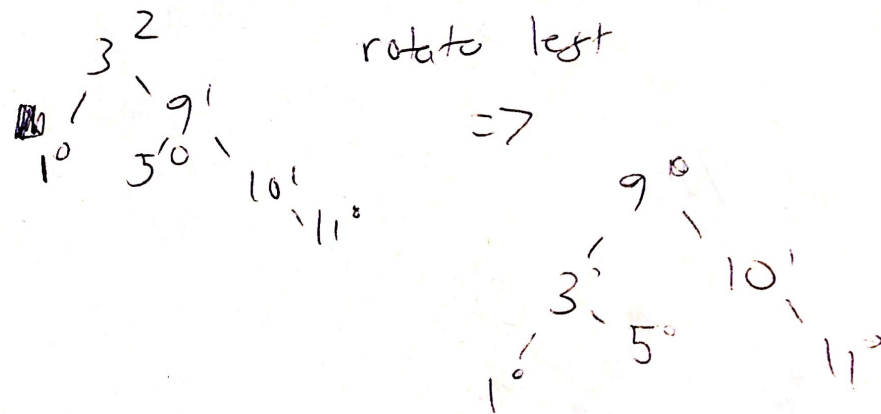 3 2
rotate left
9 1
=>
1 0
5 0
10 1
11 0
9 0
3
10 1
5 0
11 0
1 0